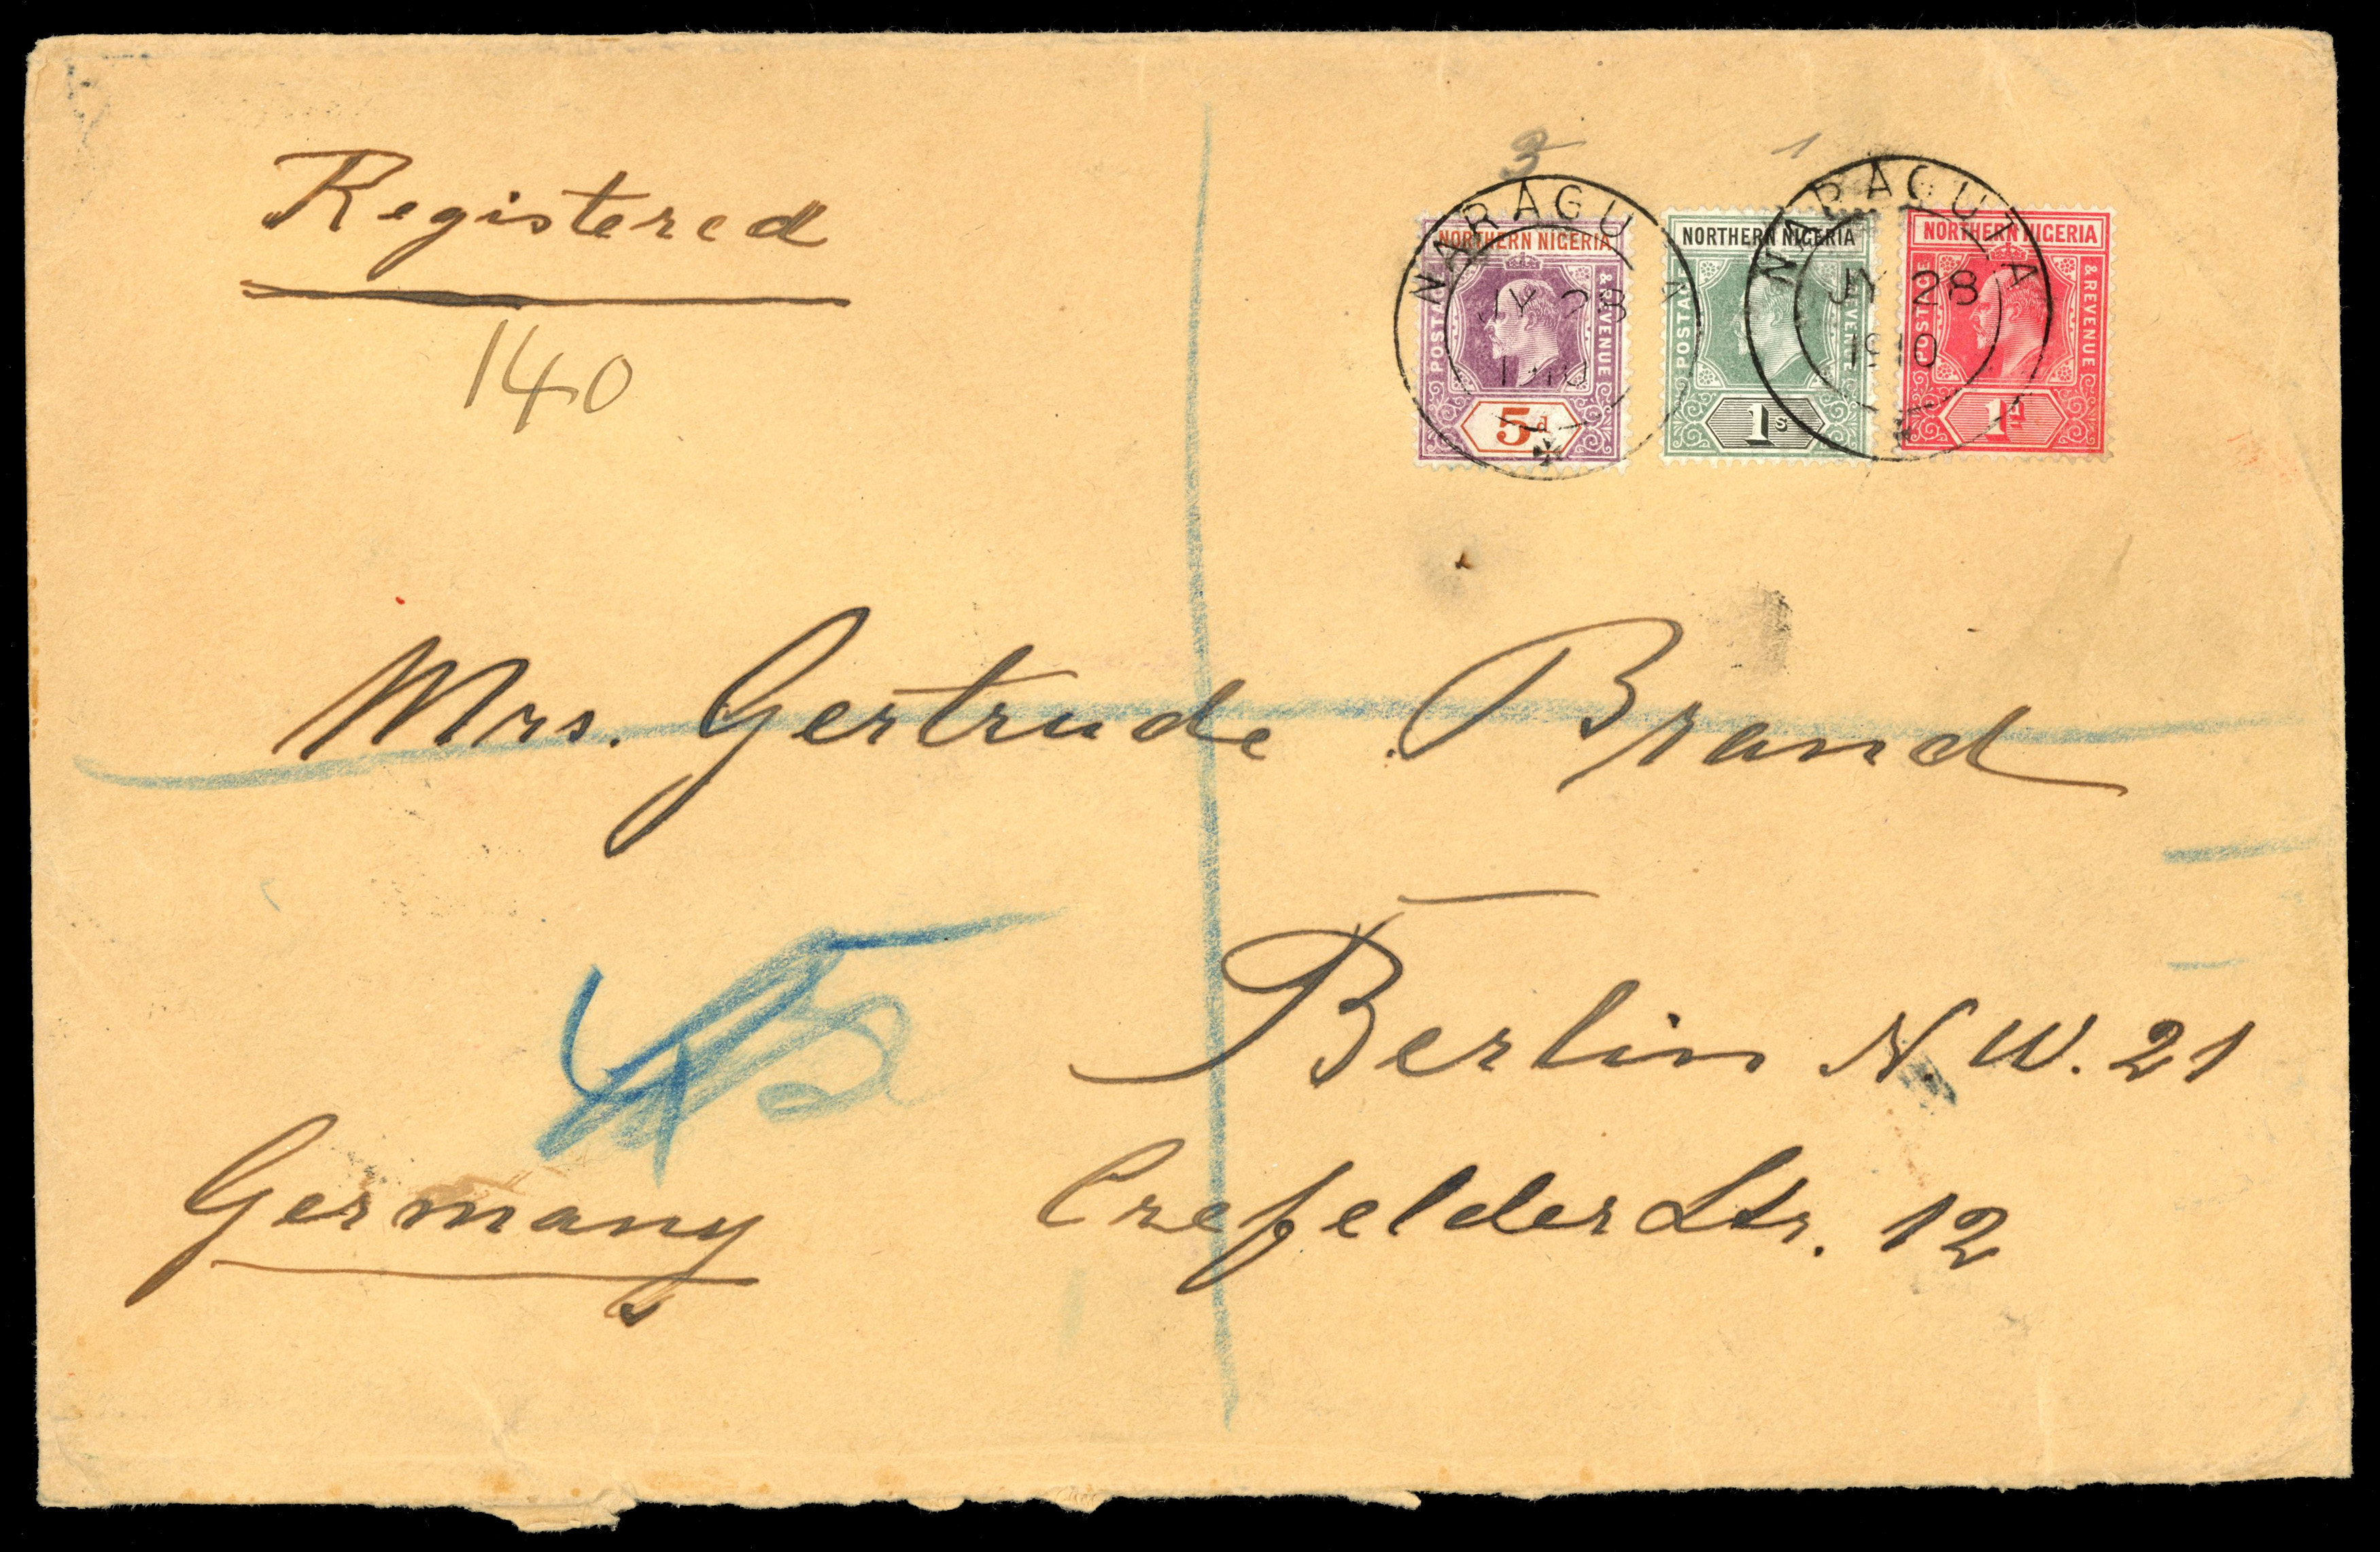 Registered
140
3
1
NARAGU A
JY 28
1910
NARAGUTA
JY 28
1910
NORTHERN NIGERIA
POSTAGE & REVENUE
5d
NORTHERN NIGERIA
POSTAGE & REVENUE
1s
NORTHERN NIGERIA
POSTAGE & REVENUE
1d
Mrs. Gertrude Brand
Berlin N.W. 21
Germany
Crefelder Str. 12